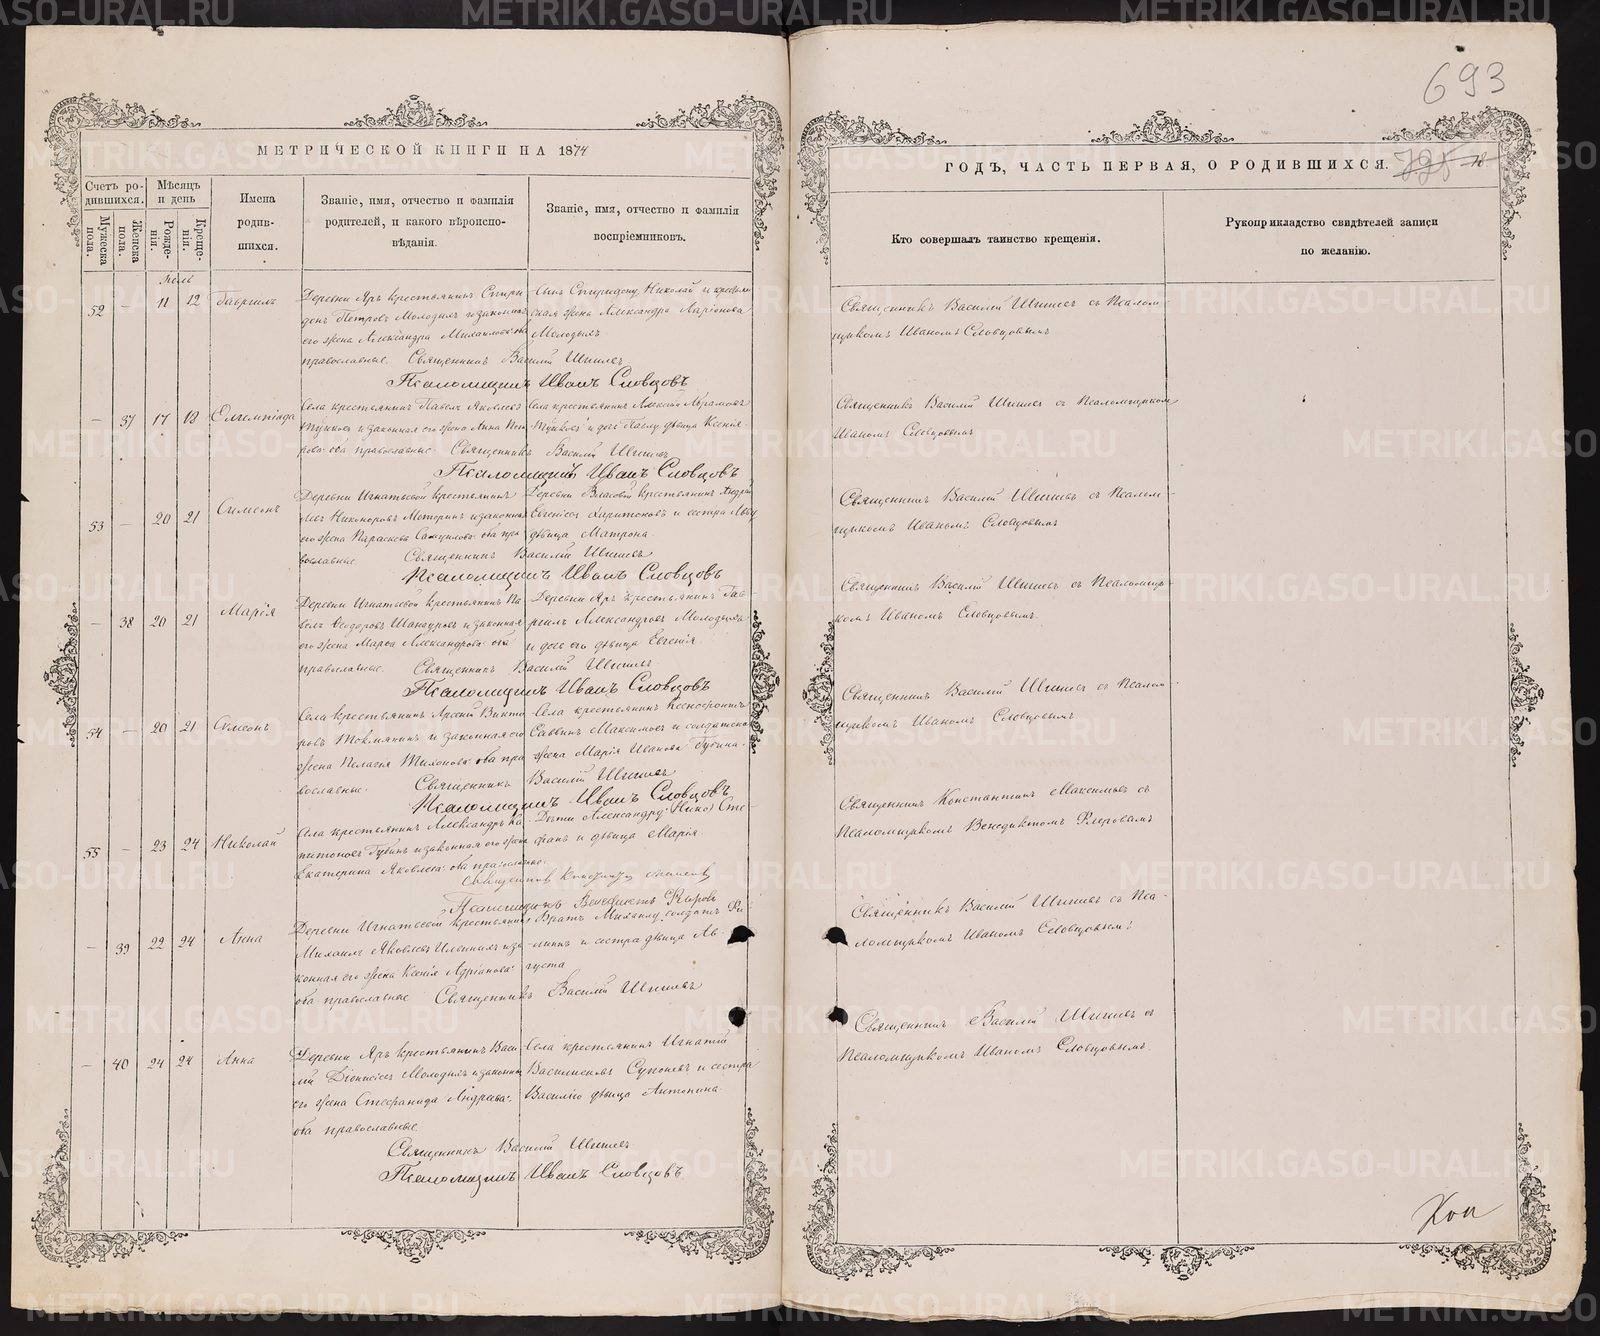 693
МЕТРИЧЕСКОЙ КНИГИ НА 1874
ГОДЪ, ЧАСТЬ ПЕРВАЯ, О РОДИВШИХСЯ.
18
Счетъ ро-
дившихся.
Мужеска
пола.
Женска
пола.
Мѣсяцъ
и день
Рожде-
нія.
Креще-
нія.
Имена
родив-
шихся.
Званіе, имя, отчество и фамилія
родителей, и какого вѣроиспо-
вѣданія.
Званіе, имя, отчество и фамилія
воспріемниковъ.
Кто совершалъ таинство крещенія.
Рукоприкладство свидѣтелей записи
по желанію.
52 — 11 12 Гавріилъ
Деревни Яръ крестьянинъ Спири
донъ Петровъ Молодыхъ и законная
его жена Александра Михаилова оба
православные. Священникъ Василій
Псаломщикъ Иванъ Словцовъ
Сынъ Спиридону Николай и крестьян
ская жена Александра Ларіонова
Молодыхъ
Священникъ Василій съ Псалом
щикомъ Иваномъ Словцовымъ
— 37 17 18
Села крестьянинъ Павелъ Яковлевъ
и законная его жена Анна
оба православные. Священникъ Василій
Псаломщикъ Иванъ Словцовъ
Села крестьянинъ Алексій Авраамовъ
и дочь Павлу дѣвица Ксенія.
Священникъ Василій съ Псаломщикомъ
Иваномъ Словцовымъ
53 — 20 21 Симеонъ
Деревни Игнатьевой крестьянинъ
Никоноровъ и законная
его жена Параскева Самуилова оба пра
вославные. Священникъ Василій
Псаломщикъ Иванъ Словцовъ
Деревни Власовой крестьянинъ Андрей
Харитоновъ и сестра
дѣвица Матрона
Священникъ Василій съ Псалом-
щикомъ Иваномъ Словцовымъ
— 38 20 21 Марія
Деревни Игнатьевой крестьянинъ Па
велъ Ѳеодоровъ и законная
его жена Марѳа Александрова оба
православные. Священникъ Василій
Псаломщикъ Иванъ Словцовъ
Деревни Яръ крестьянинъ Гав
ріилъ Александровъ Молодыхъ
и дочь его дѣвица Евгенія
Священникъ Василій съ Псаломщи-
комъ Иваномъ Словцовымъ.
54 — 20 21
Села крестьянинъ Арсеній Викто
ровъ и законная его
жена Пелагія Тихонова оба пра
вославные. Священникъ Василій
Псаломщикъ Иванъ Словцовъ
Села крестьянинъ Ксенофонтъ
Саввинъ Максимовъ и солдатская
жена Марія Иванова Губина.
Священникъ Василій съ Псалом-
щикомъ Иваномъ Словцовымъ
55 — 23 24 Николай
Села крестьянинъ Александръ Ка
питоновъ Губинъ и законная его жена
Екатерина Яковлева оба православные.
Дѣти Александру Сте-
фанъ и дѣвица Марія
Священникъ Константинъ съ
Псаломщикомъ Венедиктомъ
— 39 22 24 Анна
Деревни Игнатьевой крестьянинъ
Михаилъ Яковлевъ Ильиныхъ и за
конная его жена Ксенія Адріанова
оба православные Священникъ Василій
Братъ Михаилу солдатъ Фи-
липпъ и сестра дѣвица Ав-
густа
Священникъ Василій съ Пса-
ломщикомъ Иваномъ Словцовымъ
— 40 24 24 Анна
Деревни Яръ крестьянинъ Васи
лій Діонисіевъ Молодыхъ и законная
его жена Стефанида Андреева
оба православные.
Священникъ Василій
Псаломщикъ Иванъ Словцовъ
Села крестьянинъ Игнатій
и сестра
Василію дѣвица Антонина
Священникъ Василій съ
Псаломщикомъ Иваномъ Словцовымъ.
METRIKI.GASO-URAL.RU